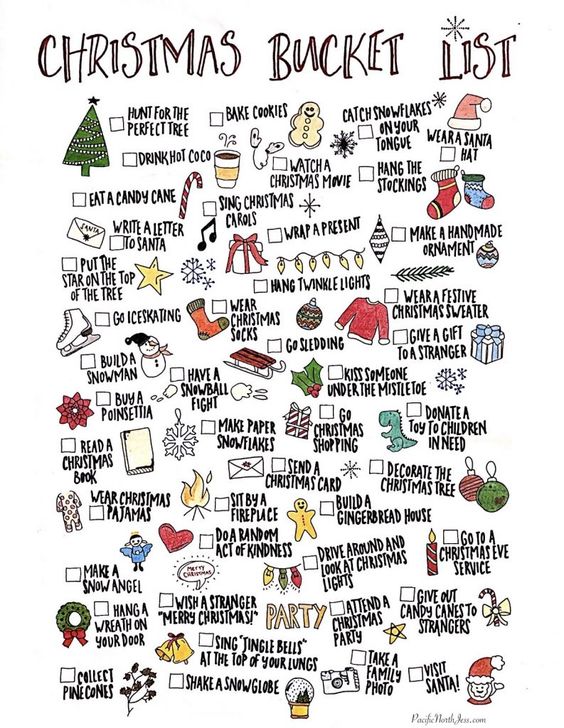 CHRISTMAS BUCKET LIST
HUNT FOR THE
PERFECT TREE
BAKE COOKIES
CATCH SNOWFLAKES
ON YOUR
TONGUE
WEAR A SANTA
HAT
DRINK HOT COCO
WATCH A
CHRISTMAS MOVIE
HANG THE
STOCKINGS
EAT A CANDY CANE
SING CHRISTMAS
CAROLS
SANTA
WRITE A LETTER
TO SANTA
WRAP A PRESENT
MAKE A HANDMADE
ORNAMENT
PUT THE
STAR ON THE TOP
OF THE TREE
HANG TWINKLE LIGHTS
GO ICESKATING
WEAR
CHRISTMAS
SOCKS
WEAR A FESTIVE
CHRISTMAS SWEATER
GO SLEDDING
GIVE A GIFT
TO A STRANGER
BUILD A
SNOWMAN
HAVE A
SNOWBALL
FIGHT
KISS SOMEONE
UNDER THE MISTLETOE
BUY A
POINSETTIA
MAKE PAPER
SNOWFLAKES
GO
CHRISTMAS
SHOPPING
DONATE A
TOY TO CHILDREN
IN NEED
READ A
CHRISTMAS
BOOK
SEND A
CHRISTMAS CARD
DECORATE THE
CHRISTMAS TREE
WEAR CHRISTMAS
PAJAMAS
SIT BY A
FIREPLACE
BUILD A
GINGERBREAD HOUSE
DO A RANDOM
ACT OF KINDNESS
DRIVE AROUND AND
LOOK AT CHRISTMAS
LIGHTS
GO TO A
CHRISTMAS EVE
SERVICE
MAKE A
SNOW ANGEL
MERRY
CHRISTMAS!
HANG A
WREATH ON
YOUR DOOR
WISH A STRANGER
"MERRY CHRISTMAS!"
PARTY
ATTEND A
CHRISTMAS
PARTY
GIVE OUT
CANDY CANES TO
STRANGERS
SING "JINGLE BELLS"
AT THE TOP OF YOUR LUNGS
COLLECT
PINECONES
SHAKE A SNOWGLOBE
TAKE A
FAMILY
PHOTO
VISIT
SANTA!
PacificNorthJess.com